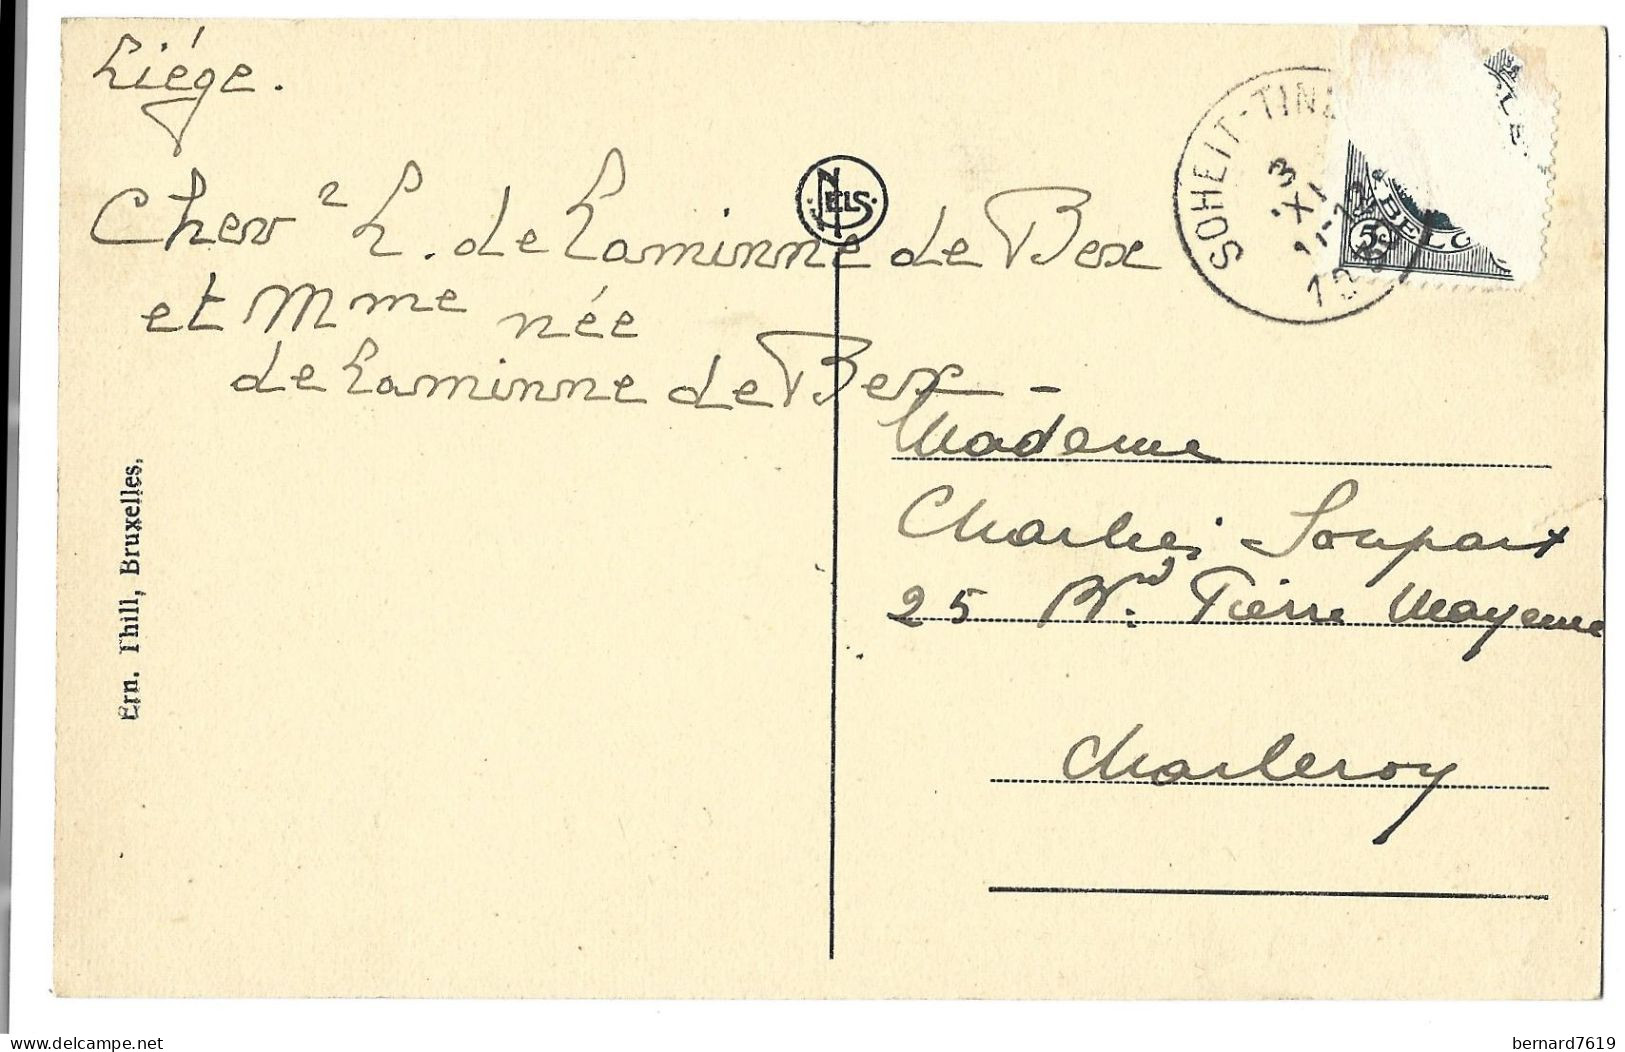 Liége.
Chev ʳ L. de Laminne de Bex
et Mme née
de Laminne de Bex -
NELS
SOHEIT-TIN
3
XI
11-12
BELG
5
Ern. Thill, Bruxelles.
Madame
Charles Soupart
25 Bᵈ. Pierre Mayence
Charleroy
bernard7619